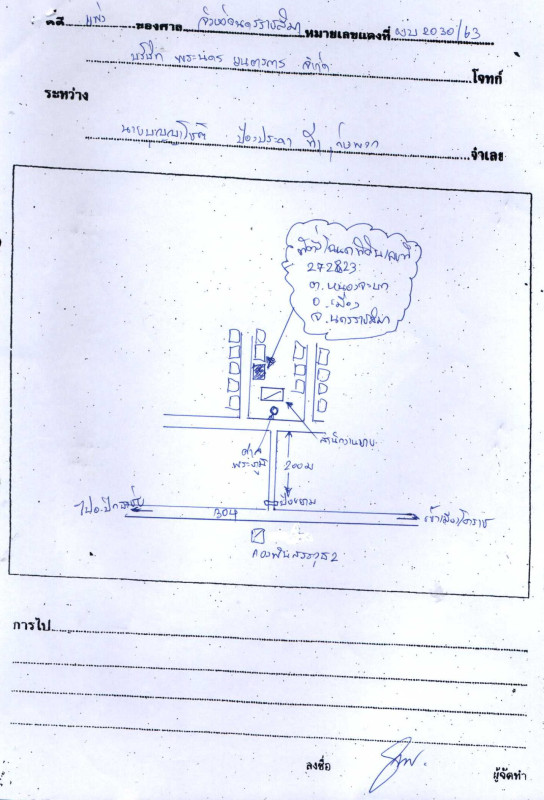 คดี แพ่ง ของศาล จังหวัดนครราชสีมา หมายเลขแดงที่ ผบ 2030/63
บริษัท พระนคร ยนตรการ จำกัด โจทก์
ระหว่าง
ที่ 1 จำเลย
ที่ตั้งโฉนดที่ดินเลขที่
272823
ต.หนองจะบก
อ.เมือง
จ.นครราชสีมา
สำนักงานขาย
ศาล
พระภูมิ
200 ม
ป้อมยาม
ไป อ.ปักธงชัย
304
เข้าเมืองโคราช
กองพันสรรพาวุธ 2
การไป
ลงชื่อ ผู้จัดทำ